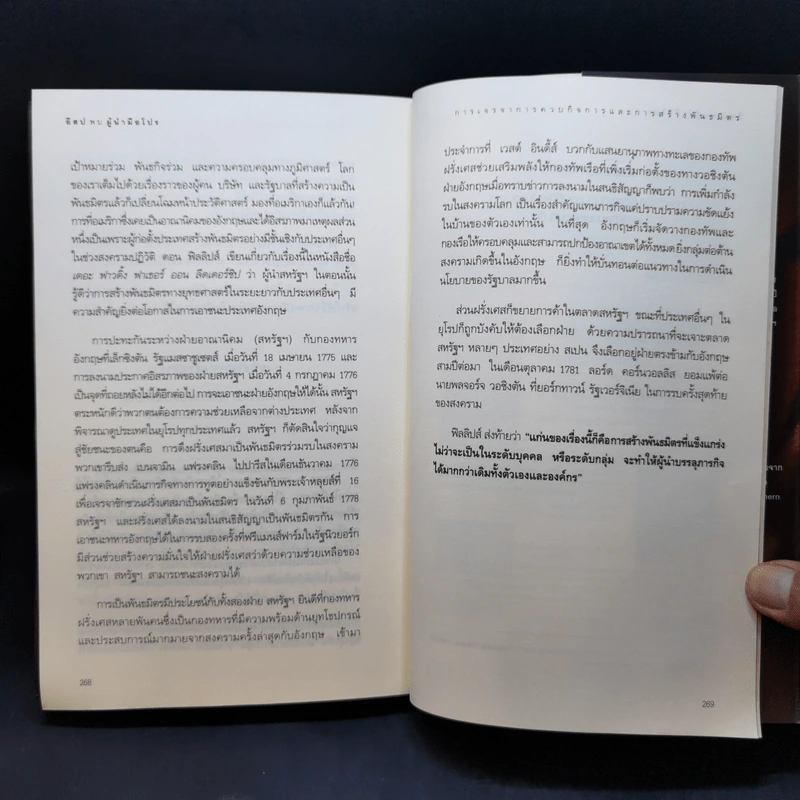 ฉีตปาทบ ผู้นำมือโปร
เป้าหมายร่วม พันธกิจร่วม และความครอบคลุมทางภูมิศาสตร์ โลก
ของเราเต็มไปด้วยเรื่องราวของผู้คน บริษัท และรัฐบาลที่สร้างความเป็น
พันธมิตรแล้วก็เปลี่ยนโฉมหน้าประวัติศาสตร์ มองที่อเมริกาเองก็แล้วกัน!
การที่อเมริกาซึ่งเคยเป็นอาณานิคมของอังกฤษและได้อิสรภาพมาเหตุผลส่วน
หนึ่งเป็นเพราะผู้ก่อตั้งประเทศสร้างพันธมิตรอย่างมีชั้นเชิงกับประเทศอื่นๆ
ในช่วงสงครามปฏิวัติ ดอน ฟิลลิปส์ เขียนเกี่ยวกับเรื่องนี้ในหนังสือชื่อ
เดอะ ฟาวดิ้ง ฟาเธอร์ ออน ลีดเดอร์ชิป ว่า ผู้นำสหรัฐฯ ในตอนนั้น
รู้ดีว่าการสร้างพันธมิตรทางยุทธศาสตร์ในระยะยาวกับประเทศอื่นๆ มี
ความสำคัญยิ่งต่อโอกาสในการเอาชนะประเทศอังกฤษ
การปะทะกันระหว่างฝ่ายอาณานิคม (สหรัฐฯ) กับกองทหาร
อังกฤษที่เล็กซิงตัน รัฐแมสซาชูเซตส์ เมื่อวันที่ 18 เมษายน 1775 และ
การลงนามประกาศอิสรภาพของฝ่ายสหรัฐฯ เมื่อวันที่ 4 กรกฎาคม 1776
เป็นจุดที่ถอยหลังไม่ได้อีกต่อไป การจะเอาชนะฝ่ายอังกฤษให้ได้นั้น สหรัฐฯ
ตระหนักดีว่าพวกตนต้องการความช่วยเหลือจากต่างประเทศ หลังจาก
พิจารณาดูประเทศในยุโรปทุกประเทศแล้ว สหรัฐฯ ก็ตัดสินใจว่ากุญแจ
สู่ชัยชนะของตนคือ การดึงฝรั่งเศสมาเป็นพันธมิตรร่วมรบในสงคราม
พวกเขารีบส่ง เบนจามิน แฟรงคลิน ไปปารีสในเดือนธันวาคม 1776
แฟรงคลินดำเนินภารกิจทางการทูตอย่างแข็งขันกับพระเจ้าหลุยส์ที่ 16
เพื่อเจรจาชักชวนฝรั่งเศสมาเป็นพันธมิตร ในวันที่ 6 กุมภาพันธ์ 1778
สหรัฐฯ และฝรั่งเศสได้ลงนามในสนธิสัญญาเป็นพันธมิตรกัน การ
เอาชนะทหารอังกฤษได้ในการรบสองครั้งที่ฟรีแมนส์ฟาร์มในรัฐนิวยอร์ก
มีส่วนช่วยสร้างความมั่นใจให้ฝ่ายฝรั่งเศสว่าด้วยความช่วยเหลือของ
พวกเขา สหรัฐฯ สามารถชนะสงครามได้
การเป็นพันธมิตรมีประโยชน์กับทั้งสองฝ่าย สหรัฐฯ ยินดีที่กองทหาร
ฝรั่งเศสหลายพันคนซึ่งเป็นกองทหารที่มีความพร้อมด้านยุทโธปกรณ์
และประสบการณ์มากมายจากสงครามครั้งล่าสุดกับอังกฤษ เข้ามา
268
การเจรจาการควบกิจการและการสร้างพันธมิตร
ประจำการที่ เวสต์ อินดี้ส์ บวกกับแสนยานุภาพทางทะเลของกองทัพ
ฝรั่งเศสช่วยเสริมพลังให้กองทัพเรือที่เพิ่งเริ่มก่อตั้งของทางวอชิงตัน
ฝ่ายอังกฤษเมื่อทราบข่าวการลงนามในสนธิสัญญาก็พบว่า การเพิ่มกำลัง
รบในสงครามโลก เป็นเรื่องสำคัญแทนภารกิจแค่ปราบปรามความขัดแย้ง
ในบ้านของตัวเองเท่านั้น ในที่สุด อังกฤษก็เริ่มจัดวางกองทัพและ
กองเรือให้ครอบคลุมและสามารถปกป้องอาณาเขตได้ทั้งหมดยิ่งกลุ่มต่อต้าน
สงครามเกิดขึ้นในอังกฤษ ก็ยิ่งทำให้บั่นทอนต่อแนวทางในการดำเนิน
นโยบายของรัฐบาลมากขึ้น
ส่วนฝรั่งเศสก็ขยายการค้าในตลาดสหรัฐฯ ขณะที่ประเทศอื่นๆ ใน
ยุโรปก็ถูกบังคับให้ต้องเลือกฝ่าย ด้วยความปรารถนาที่จะเจาะตลาด
สหรัฐฯ หลายๆ ประเทศอย่าง สเปน จึงเลือกอยู่ฝ่ายตรงข้ามกับอังกฤษ
สามปีต่อมา ในเดือนตุลาคม 1781 ลอร์ด คอร์นวอลลิส ยอมแพ้ต่อ
นายพลจอร์จ วอชิงตัน ที่ยอร์กทาวน์ รัฐเวอร์จิเนีย ในการรบครั้งสุดท้าย
ของสงคราม
ฟิลลิปส์ ส่งท้ายว่า "แก่นของเรื่องนี้ก็คือการสร้างพันธมิตรที่แข็งแกร่ง
ไม่ว่าจะเป็นในระดับบุคคล หรือระดับกลุ่ม จะทำให้ผู้นำบรรลุภารกิจ
ได้มากกว่าเดิมทั้งตัวเองและองค์กร"
269